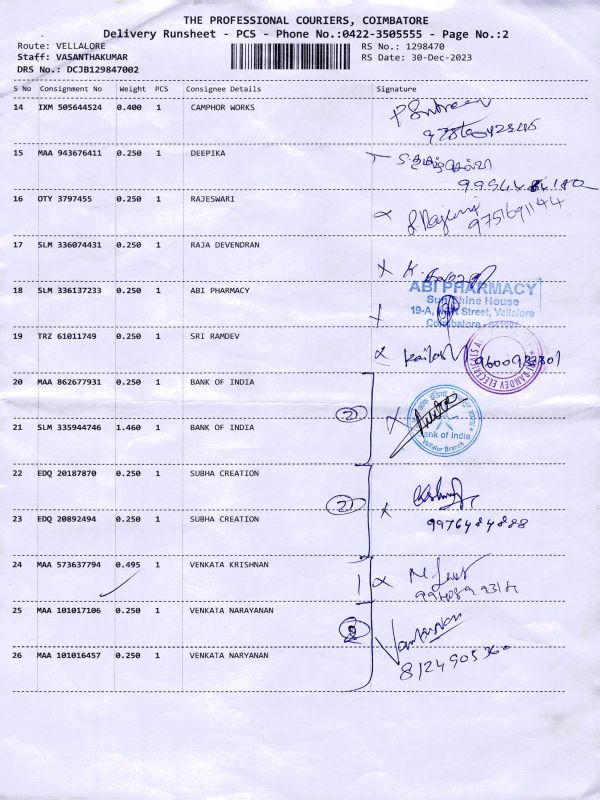 THE PROFESSIONAL COURIERS, COIMBATORE
Delivery Runsheet - PCS - Phone No.:0422-3505555 - Page No.:2
Route: VELLALORE RS No.: 1298470
Staff: VASANTHAKUMAR RS Date: 30-Dec-2023
DRS No.: DCJB129847002
S No Consignment No Weight PCS Consignee Details Signature
14 IXM 505644524 0.400 1 CAMPHOR WORKS
15 MAA 943676411 0.250 1 DEEPIKA
S. தமிழ்செல்வி
16 OTY 3797455 0.250 1 RAJESWARI
9751691144
17 SLM 336074431 0.250 1 RAJA DEVENDRAN
K.
18 SLM 336137233 0.250 1 ABI PHARMACY
ABI PHARMACY
Sun Shine House
19-A, Main Street, Vellalore
Coimbatore - 641001
19 TRZ 61011749 0.250 1 SRI RAMDEV
Kailash
20 MAA 862677931 0.250 1 BANK OF INDIA
2
21 SLM 335944746 1.460 1 BANK OF INDIA
Bank of India
Vellalur Branch
22 EDQ 20187870 0.250 1 SUBHA CREATION
2
23 EDQ 20892494 0.250 1 SUBHA CREATION
9976484888
24 MAA 573637794 0.495 1 VENKATA KRISHNAN
1
25 MAA 101017106 0.250 1 VENKATA NARAYANAN
2
26 MAA 101016457 0.250 1 VENKATA NARYANAN
8124905360